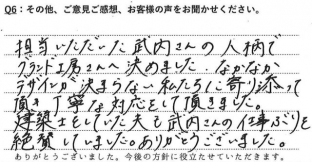 Q6：その他、ご意見ご感想、お客様の声をお聞かせください。
担当いただいた武内さんの人柄で
グランド工房さんへ決めました。なかなか
デザインが決まらない私たちに寄り添って
頂き丁寧な対応をして頂きました。
建築士をしていた夫も武内さんの仕事ぶりを
絶賛していました。ありがとうございました。
ありがとうございました。今後の方針に役立たせていただきます。